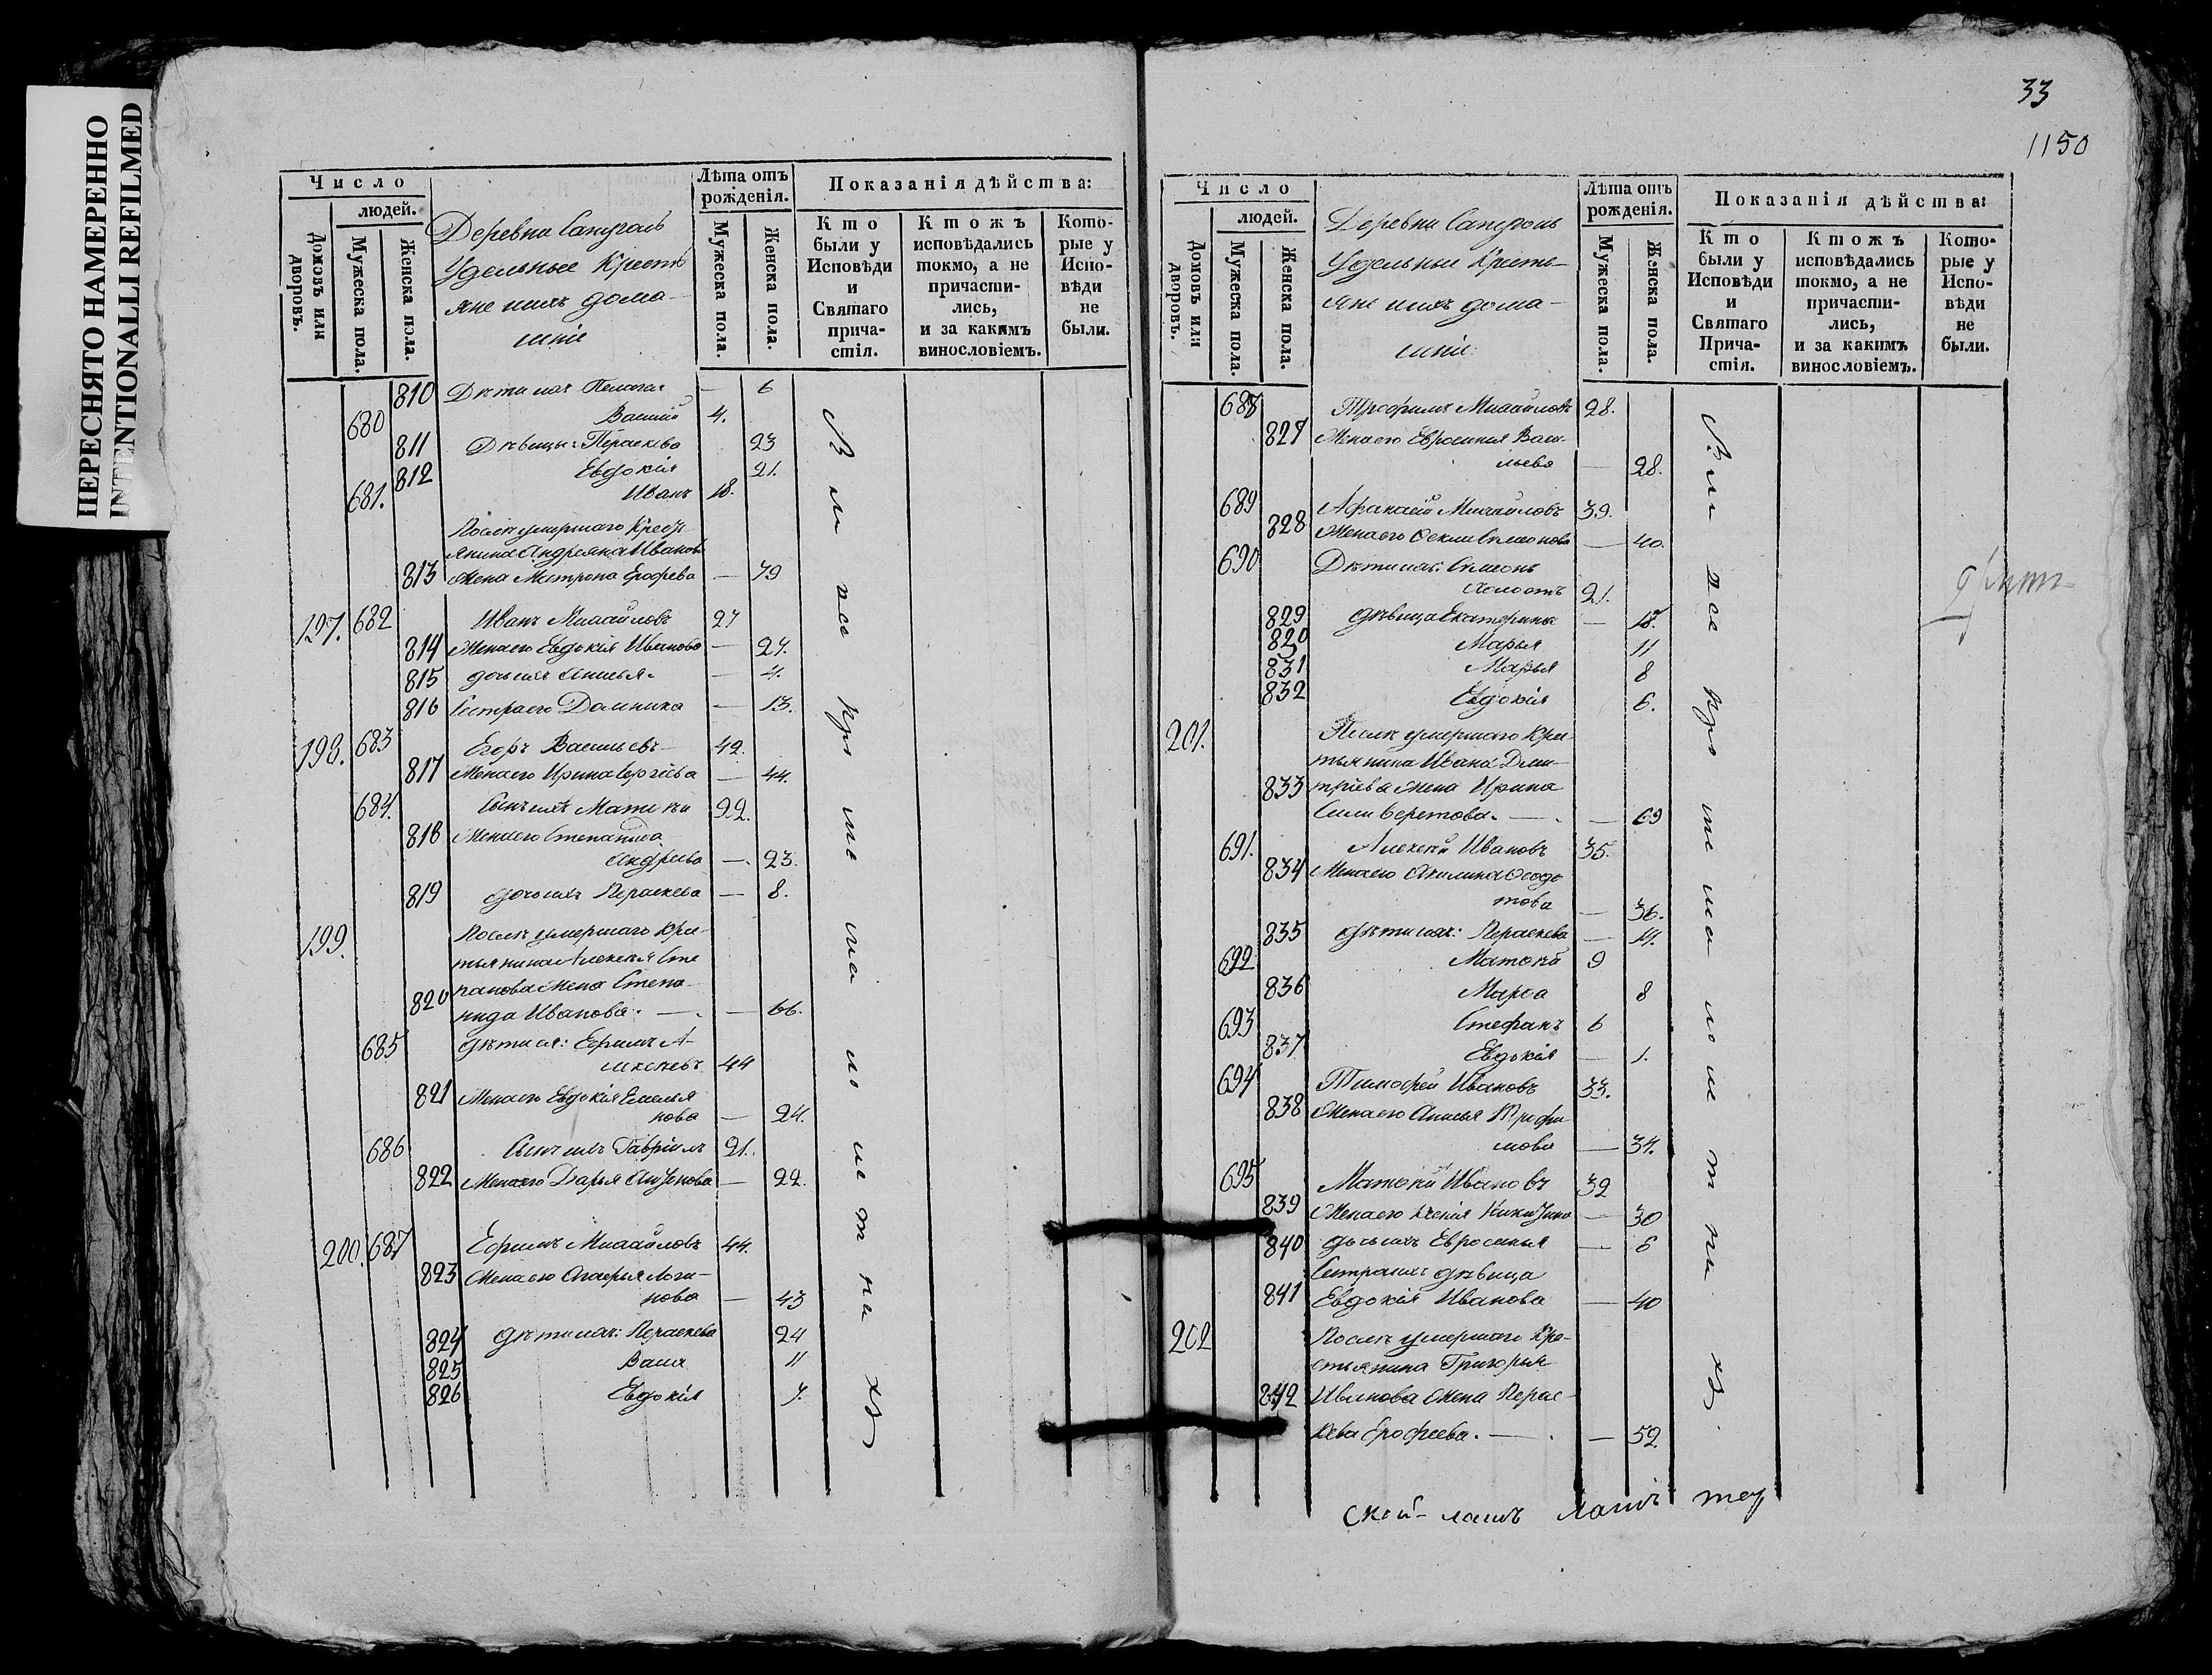 ПЕРЕСНЯТО НАМЕРЕННО
INTENTIONALLI REFILMED
Число
людей.
Домовъ или дворовъ.
Мужеска пола.
Женска пола.
Деревни
Удельные Крестья
яне и ихъ дома-
шніе
Лѣта отъ рожденія.
Мужеска пола.
Женска пола.
Показанія дѣйства:
Кто были у Исповѣди и Святаго причастія.
Ктожъ исповѣдались токмо, а не причастились, и за какимъ винословіемъ.
Которые у Исповѣди не были.
810 Дѣти ихъ Пелагея — 6
680 Василій 4.
811 Дѣвицы: Параскева 23
812 Евдокія 21.
681. Иванъ 18.
Послѣ умершаго Крест
янина Андреяна Иванов
813 Жена Матрона Ерофеева — 79
197. 682 Иванъ Михайловъ 27
814 Жена его Евдокія Иванова — 27.
815 дочь ихъ Анисья — 4.
816 Сестра его Домника — 13.
198. 683 Егоръ Васильевъ 42.
817 Жена его Ирина Сергѣева — 44.
684. Сынъ ихъ Матѳѣй 22.
818 Жена его Степанида
Андреева — 23.
819 дочь ихъ Параскева — 8.
199. Послѣ умершаго Кре-
стьянина Алексѣя Сте
820 панова Жена Степа-
нида Иванова. — 66.
685 дѣти ея: Ефимъ А-
лексѣевъ 44
821 Жена его Евдокія Емелья
нова — 24.
686 Сынъ ихъ Гавріилъ 21.
822 Жена его Дарья — 22.
200. 687 Ефимъ Михайловъ 44.
823 Жена его Агафья Логи-
нова — 43
824 дѣти ихъ: Параскева 24
825 Васса 11
826 Евдокія 7.
33
1150
Число
людей.
Домовъ или дворовъ.
Мужеска пола.
Женска пола.
Деревни
Удельные Кресть-
яне и ихъ дома-
шніе
Лѣта отъ рожденія.
Мужеска пола.
Женска пола.
Показанія дѣйства:
Кто были у Исповѣди и Святаго Причастія.
Ктожъ исповѣдались токмо, а не причастились, и за какимъ винословіемъ.
Которые у Исповѣди не были.
688 Трофимъ Михайловъ 28.
827 Жена его Евросинья Васи-
льева — 28.
689 Афанасій Михайловъ 39.
828 Жена его Ѳекла Симонова — 40.
690 Дѣти ихъ: Симеонъ
холостъ 21.
829 дѣвица Екатерина — 18.
820 Марья 11
831 Марья 8
832 Евдокія 6.
201. Послѣ умершаго Кре
стьянина Ивана Дми-
833 тріева жена Ирина
Силиверстова. — 69
691. Алексѣй Ивановъ 35.
834 Жена его Акилина Ѳедо
това — 36.
835 дѣти ихъ: Параскева — 14.
692 Матѳѣй 9
836 Марѳа 8
693 Стефанъ 6
837 Евдокія — 1.
694 Тимофей Ивановъ 33.
838 Жена его Анисья Трофи
мова — 34.
695 Матѳѣй Ивановъ 32
839 Жена его Ксенія — 30
840 дочь ихъ Евросинья — 6
Сестра ихъ дѣвица
841 Евдокія Иванова — 40
202 Послѣ умершаго Кре-
стьянина Григорья
842 Иванова Жена Парас-
кева Ерофеева. — 52